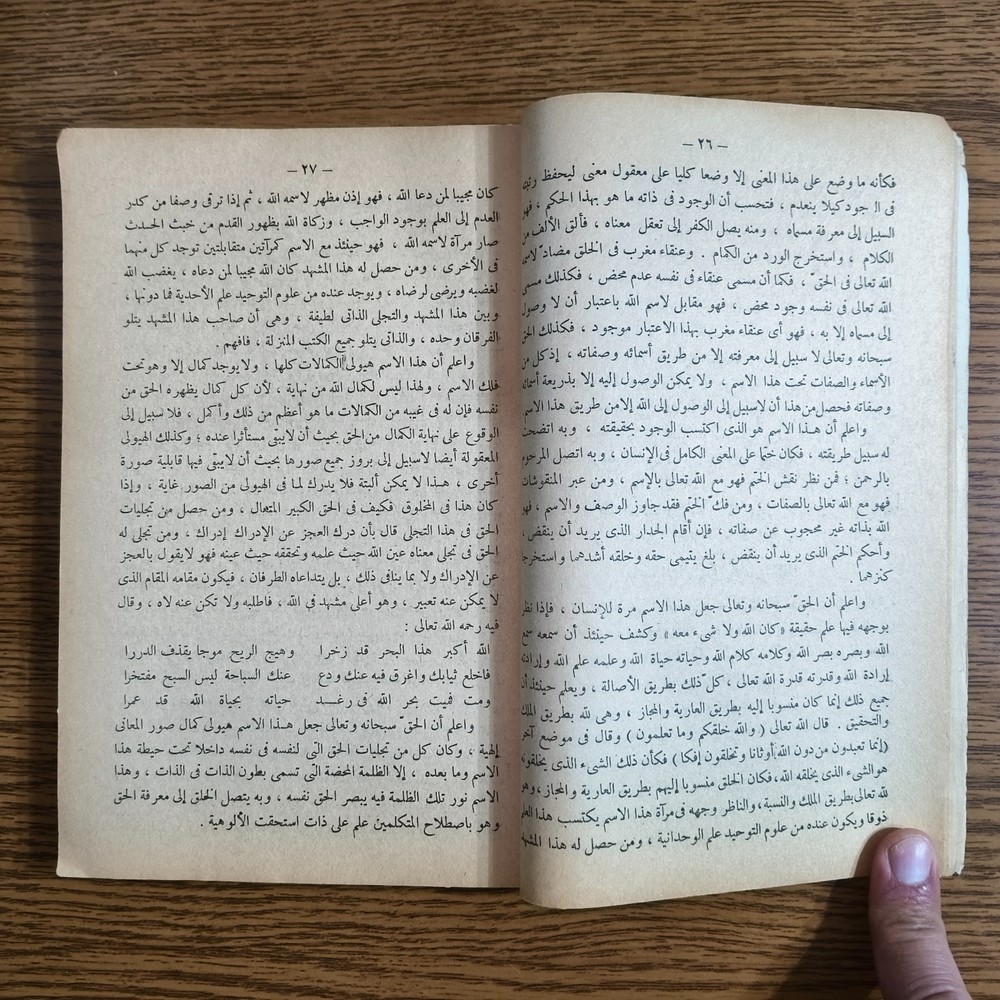 — ٢٦ —
فكأنه ما وضع على هذا المعنى إلا وضعا كليا على معقول معنى ليحفظ رتبته
فى الوجود كيلا ينعدم ، فتحسب أن الوجود فى ذاته ما هو بهذا الحكم ، فهو
السبيل إلى معرفة مسماه ، ومنه يصل الكفر إلى تعقل معناه ، فألق الألف من
الكلام ، واستخرج الورد من الكمام . وعنقاء مغرب فى الخلق مضاد لاسم
الله تعالى فى الحق ، فكما أن مسمى عنقاء فى نفسه عدم محض ، فكذلك مسمى
الله تعالى فى نفسه وجود محض ، فهو مقابل لاسم الله باعتبار أن لا وصول
إلى مسماه إلا به ، فهو أى عنقاء مغرب بهذا الاعتبار موجود ، فكذلك الحق
سبحانه وتعالى لا سبيل إلى معرفته إلا من طريق أسمائه وصفاته ، إذ كل من
الأسماء والصفات تحت هذا الاسم ، ولا يمكن الوصول إليه إلا بذريعة أسمائه
وصفاته فحصل من هذا أن لاسبيل إلى الوصول إلى الله إلا من طريق هذا الاسم
واعلم أن هـذا الاسم هو الذى اكتسب الوجود بحقيقته ، وبه اتضحت
له سبيل طريقته ، فكان ختما على المعنى الكامل فى الإنسان ، وبه اتصل المرحوم
بالرحمن ؛ فمن نظر نقش الختم فهو مع الله تعالى بالإسم ، ومن عبر المنقوشات
فهو مع الله تعالى بالصفات ، ومن فكّ الختم فقد جاوز الوصف والاسم ، فهو
الله بذاته غير محجوب عن صفاته ، فإن أقام الجدار الذى يريد أن ينقض ،
وأحكم الختم الذى يريد أن ينقض ، بلغ يتيمى حقه وخلقه أشدهما واستخرجا
كنزهما .
واعلم أن الحقّ سبحانه وتعالى جعل هذا الاسم مرة للإنسان ، فإذا نظر
بوجهه فيها علم حقيقة « كان الله ولا شىء معه » وكشف حينئذ أن سمعه سمع
الله وبصره بصر الله وكلامه كلام الله وحياته حياة الله وعلمه علم الله وإرادته
إرادة الله وقدرته قدرة الله تعالى ، كلّ ذلك بطريق الأصالة ، ويعلم حينئذ أن
جميع ذلك إنما كان منسوبا إليه بطريق العارية والمجاز ، وهى لله بطريق الملك
والتحقيق . قال الله تعالى ( والله خلقكم وما تعلمون ) وقال فى موضع آخر
(إنما تعبدون من دون الله أوثانا وتخلقون إفكا ) فكأن ذلك الشىء الذى يخلقونه
هو الشىء الذى يخلقه الله، فكان الخلق منسوبا إليهم بطريق العارية والمجاز، وهو
لله تعالى بطريق الملك والنسبة، والناظر وجهه فى مرآة هذا الاسم يكتسب هذا العلم
ذوقا ويكون عنده من علوم التوحيد علم الوحدانية ، ومن حصل له هذا المشهد
— ٢٧ —
كان مجيبا لمن دعا الله ، فهو إذن مظهر لاسمه الله ، ثم إذا ترقى وصفا من كدر
العدم إلى العلم بوجود الواجب ، وزكاة الله بظهور القدم من خبث الحدث
صار مرآة لاسمه الله ، فهو حينئذ مع الاسم كمرآتين متقابلتين توجد كل منهما
فى الأخرى ، ومن حصل له هذا المشهد كان الله مجيبا لمن دعاه ، يغضب الله
لغضبه ويرضى لرضاه ، ويوجد عنده من علوم التوحيد علم الأحدية فما دونها ،
وبين هذا المشهد والتجلى الذاتى لطيفة ، وهى أن صاحب هذا المشهد يتلو
الفرقان وحده ، والذاتى يتلو جميع الكتب المنزلة ، فافهم .
واعلم أن هذا الاسم هيولى الكمالات كلها ، ولا يوجد كمال إلا وهو تحت
فلك الاسم ، ولهذا ليس لكمال الله من نهاية ، لأن كل كمال يظهره الحق من
نفسه فإن له فى غيبه من الكمالات ما هو أعظم من ذلك وأكمل ، فلا سبيل إلى
الوقوع على نهاية الكمال من الحق بحيث أن لايبقى مستأثرا عنده ؛ وكذلك الهيولى
المعقولة أيضا لاسبيل إلى بروز جميع صورها بحيث أن لايبقى فيها قابلية صورة
أخرى ، هـذا لا يمكن ألبتة فلا يدرك لما فى الهيولى من الصور غاية ، وإذا
كان هذا فى المخلوق فكيف فى الحق الكبير المتعال ، ومن حصل من تجليات
الحق فى هذا التجلى قال بأن درك العجز عن الإدراك إدراك ، ومن تجلى له
الحق فى تجلى معناه عين الله حيث علمه وتحققه حيث عينه فهو لايقول بالعجز
عن الإدراك ولا بما ينافى ذلك ، بل يتداعاه الطرفان ، فيكون مقامه المقام الذى
لا يمكن عنه تعبير ، وهو أعلى مشهد في الله ، فاطلبه ولا تكن عنه لاه ، وقال
فيه رحمه الله تعالى :
الله أكبر هذا البحر قد زخرا وهيج الريح موجا يقذف الدررا
فاخلع ثيابك واغرق فيه عنك ودع عنك السباحة ليس السبح مفتخرا
ومت فميت بحر الله فى رغـــد حياته بحياة الله قد عمرا
واعلم أن الحقّ سبحانه وتعالى جعل هـذا الاسم هيولى كمال صور المعانى
إلهية ، وكان كل من تجليات الحق التى لنفسه فى نفسه داخلا تحت حيطة هذا
الاسم وما بعده ، إلا الظلمة المحضة التى تسمى بطون الذات فى الذات ، وهذا
الاسم نور تلك الظلمة فيه يبصر الحق نفسه ، وبه يتصل الخلق إلى معرفة الحق
وهو باصطلاح المتكلمين علم على ذات استحقت الألوهية .